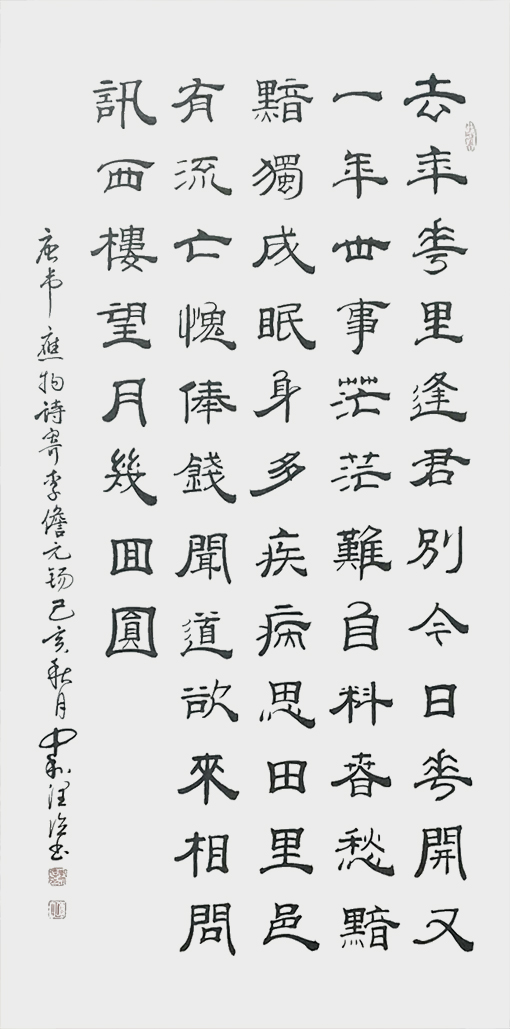 去年花里逢君別今日花開又
一年世事茫茫難自料春愁黯
黯獨成眠身多疾病思田里邑
有流亡愧俸錢聞道欲來相問
訊西樓望月幾回圓
唐韦應物诗寄李儋元锡己亥秋月书